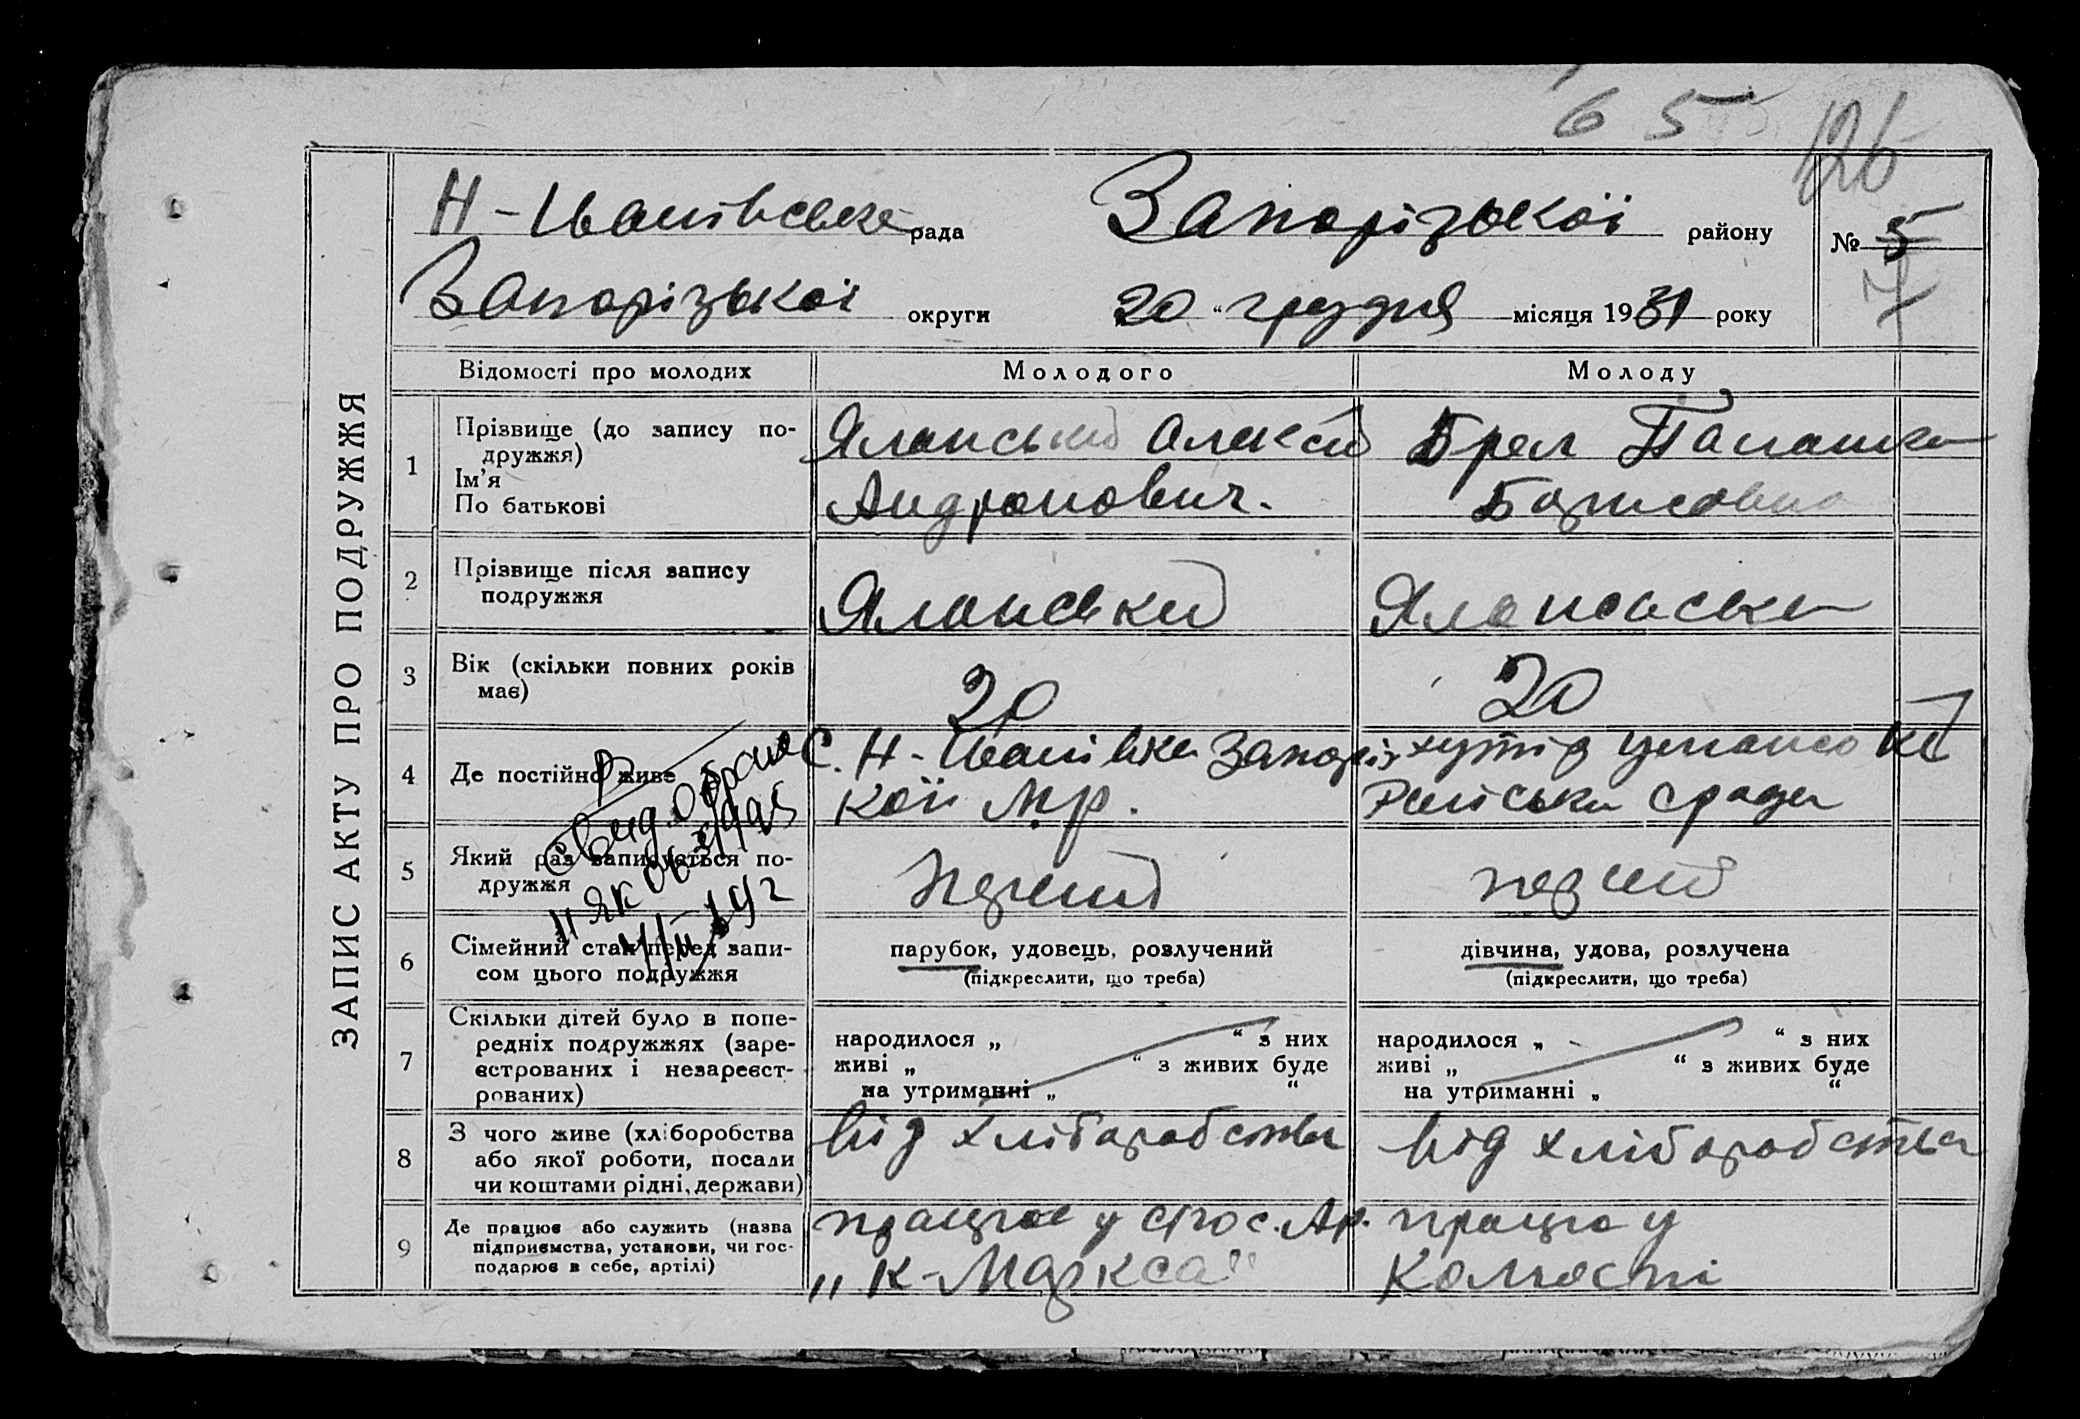 6 5
126
Н-Іванівська рада Запорізької району № 5
Запорізької округи 20 " грудня місяця 1931 року
ЗАПИС АКТУ ПРО ПОДРУЖЖЯ
Відомості про молодих Молодого Молоду
1 Прізвище (до запису по-
дружжя)
Ім'я
По батькові
Яланський Олексій
Андронович.
Брел
Борисовна
2 Прізвище після запису
подружжя
Яланський
3 Вік (скільки повних років
має)
20
20
4 Де постійно живе
С. Н-Іванівка Запоріз
кої м.р.
хутір
5 Який раз записується по-
дружжя
Перший
перший
6 Сімейний стан перед запи-
сом цього подружжя
парубок, удовець, розлучений
(підкреслити, що треба)
дівчина, удова, розлучена
(підкреслити, що треба)
7 Скільки дітей було в попе-
редніх подружжях (заре-
єстрованих і незареєст-
рованих)
народилося „ “ з них
живі „ “ з живих буде
на утриманні „ “
народилося „ “ з них
живі „ “ з живих буде
на утриманні „ “
8 З чого живе (хліборобства
або якої роботи, посади
чи коштами рідні, держави)
від хліборобства
від хліборобства
9 Де працює або служить (назва
підприємства, установи, чи гос-
подарює в себе, артілі)
працює у с/гос. Ар.
„К-Маркса"
працює у